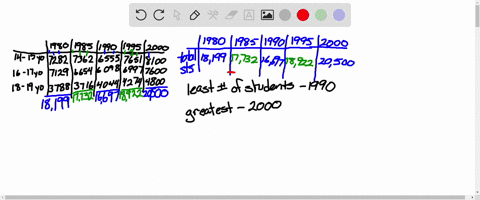 1980 1985 1990 1995 2000
14-15yo 7282 7362 6555 7651 8100
16-17yo 7129 6654 6098 6997 7600
18-19yo 3788 3716 4044 4274 4800
18,199 17,732 16,697 18,922
1980 1985 1990 1995 2000
total 18,199 17,732 16,697 18,922 20,500
sts
least # of students - 1990
greatest - 2000